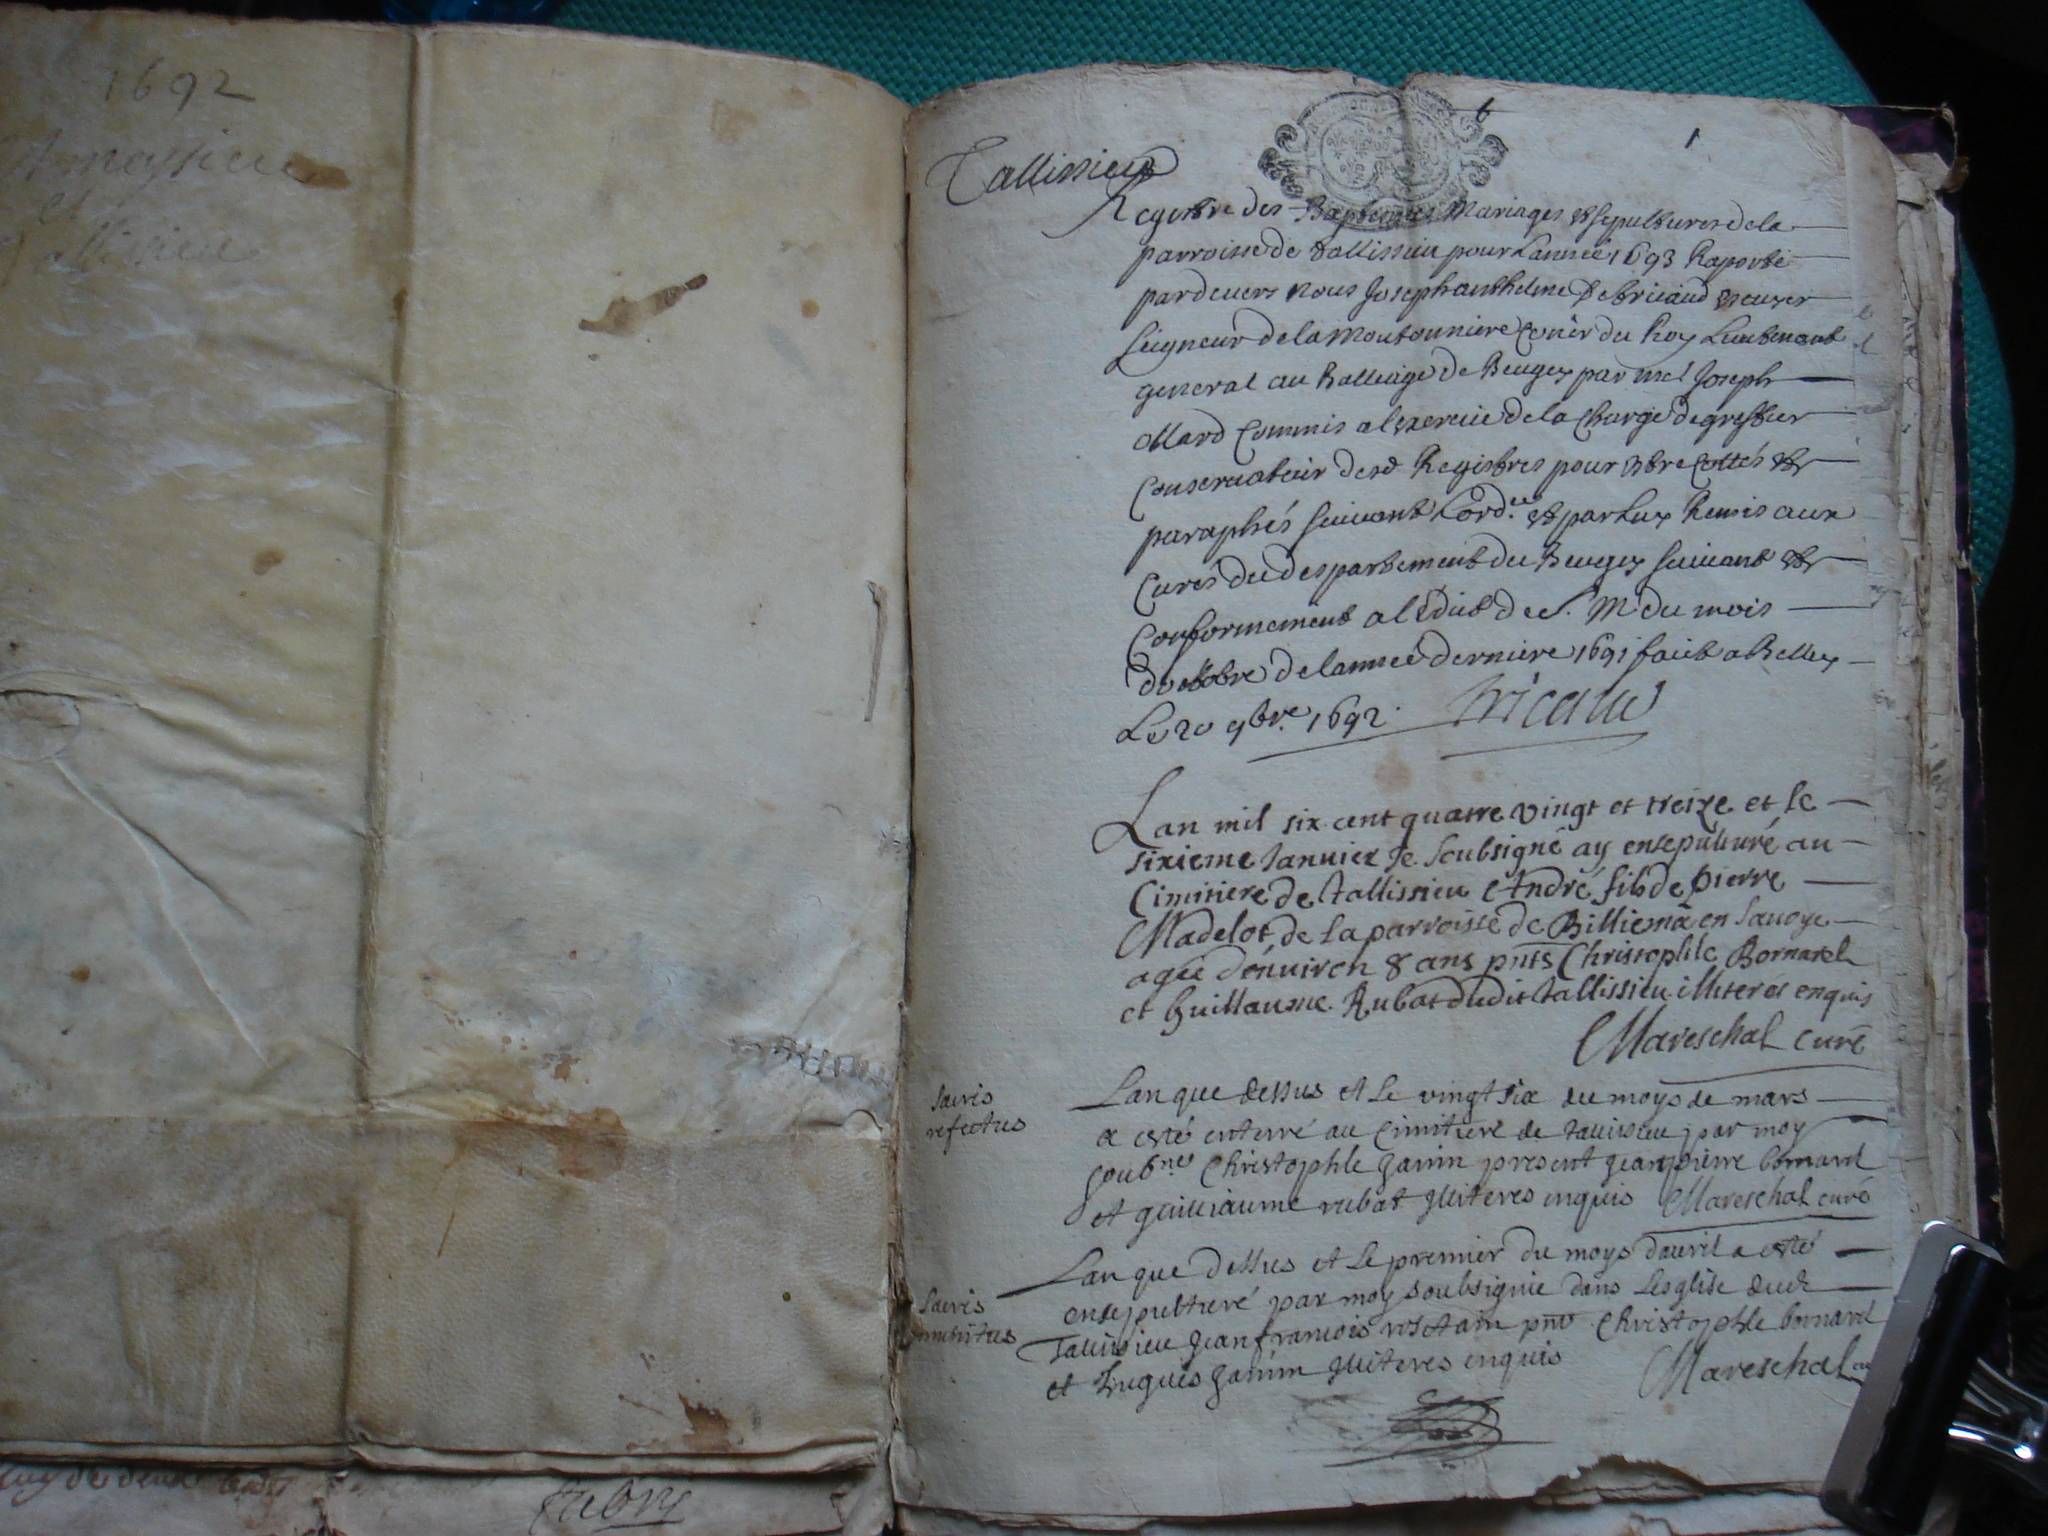 1692
Ameysieu
et
Tallissieu
6
1
Tallissieu
Regestre des Baptesmes Mariages et sepultures de la
parroisse de tallissieu pour Lannee 1693 Raporté
pardevers nous Joseph anthelme De bricaud escuyer
seigneur de la moutonniere Conër du Roy Lieutenant
general au Balliage De Beugey par me Joseph
ollard Commis a lexercice de la Charge de greffier
Conservateur desd Registres pour estre cottés et
paraphés suivant Lordce et par Luy Remis aux
Curés du despartement du Beugey suivant et
Conformement a lEdict de S. M du mois
doctobre de lannee derniere 1691 faict a Belley
Le 20 9bre 1692. Bricaud
Lan mil six cent quatre vingt et treize et le
sixieme Januier Je soubsigné ay ensepulturé au
Cimitiere de tallissieu André fils de Pierre
Madelot de la parroisse de Billiemã en sauoye
agée d'enuiron 8 ans pnts Christophle Bornarel
et Guillaume Rubat dudit tallissieu illiterés enquis
Mareschal curé
Sacris
refectus
Lan que dessus et Le vingt six du moys de mars
a esté enterré au Cimitiere de taillisieu par moy
soubne Christophle Janin present Jean pierre bornarel
et guilliaume rubat Illiteres enquis Mareschal curé
Sacris
munitus
Lan que dessus et Le premier du moys dauril a esté
ensepulturé par moy soubsignie dans Lesglise dud
taillisieu Jean francois rostain pnt Christophle bornarel
et hugues Janin Illiteres enquis Mareschal
de deux